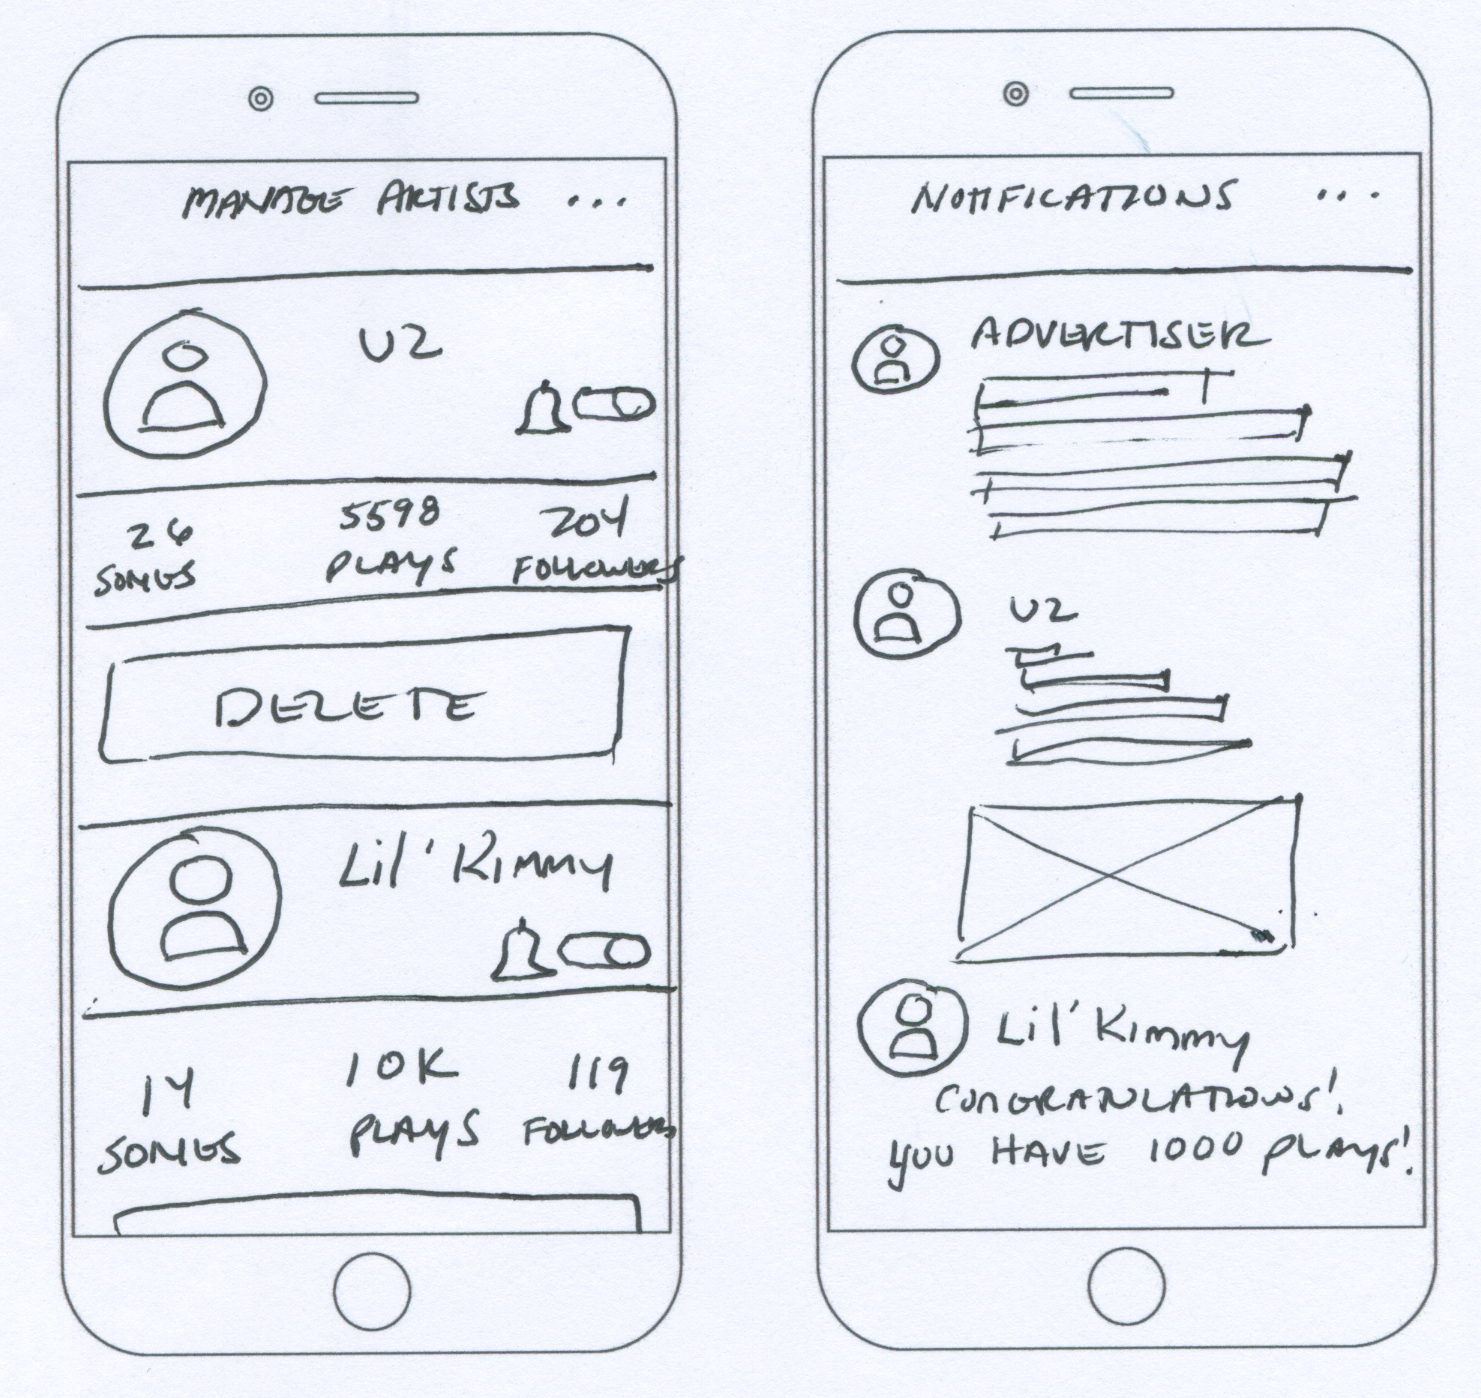 MANAGE ARTISTS ...
U2
26 5598 204
SONGS PLAYS FOLLOWERS
DELETE
Lil' Kimmy
14 10K 119
SONGS PLAYS FOLLOWERS
NOTIFICATIONS ...
ADVERTISER
U2
Lil' Kimmy
CONGRATULATIONS!
YOU HAVE 1000 PLAYS!